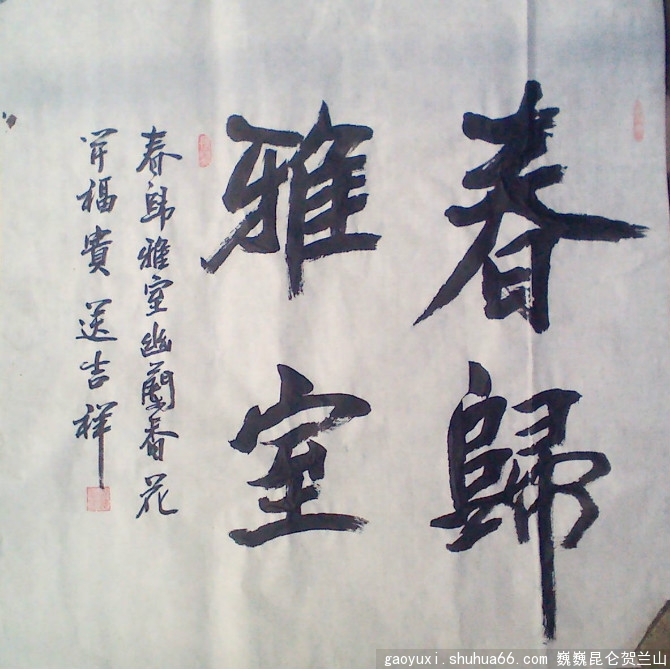 春歸
雅室
春歸雅室幽蘭香花
開福貴送吉祥
gaoyuxi.shuhua66.com 巍巍昆仑贺兰山